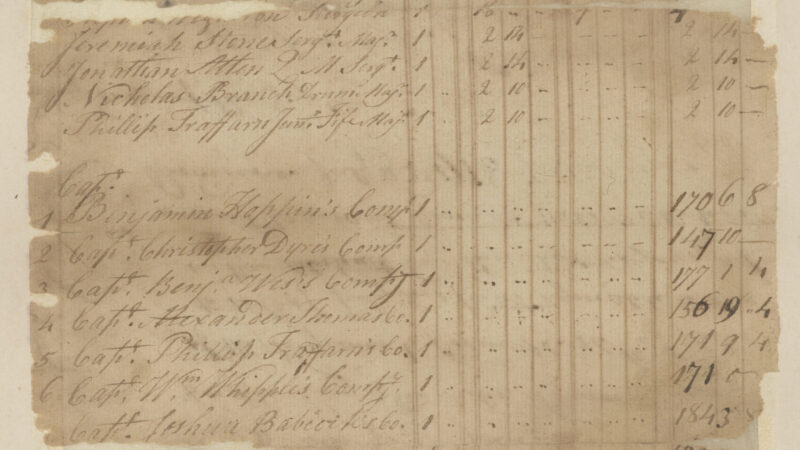 Jeremiah Stone Sergt. Majr. 1 2 14 – 2 14 –
Jonathan Allen Q M Sergt. 1 2 14 – 2 14 –
Nicholas Branch Drum Majr. 1 2 10 – 2 10 –
Phillip Traffarn Junr. Fife Majr 1 2 10 – 2 10 –
Capt.
1 Benjamin Hoppin's Comp 1 170 6 8
2 Capt. Christopher Dyre's Comp 1 147 10 –
3 Capt. Benja. West's Compy 1 177 1 4
4 Capt. Alexander Thomas Co. 1 156 19 4
5 Capt. Phillip Traffarn's Co. 1 171 9 4
6 Capt. Wm. Whipple's Compy. 1 171 0 –
Capt. Joshua Babcock's Co. 1 184 3 8